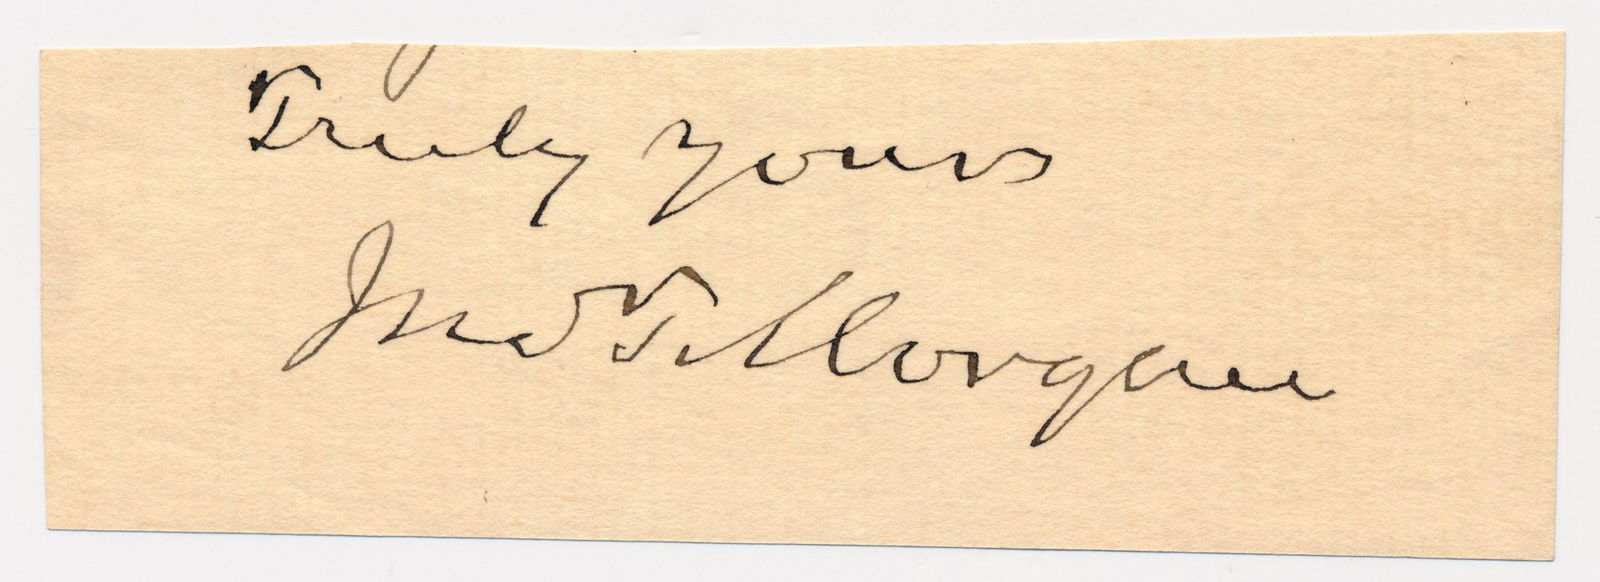 Truly yours
Jno T. Morgan